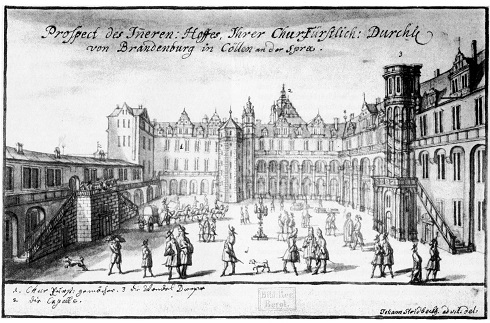 Prospect des Inneren: Hoffes, Ihrer Churfürstlich: Durchl:
von Brandenburg in Cöllen an der Spree.
3
1. Chur Fürstl: gemächer. 3 die Wendel
2 die Capelle.
Johann Stridbeck